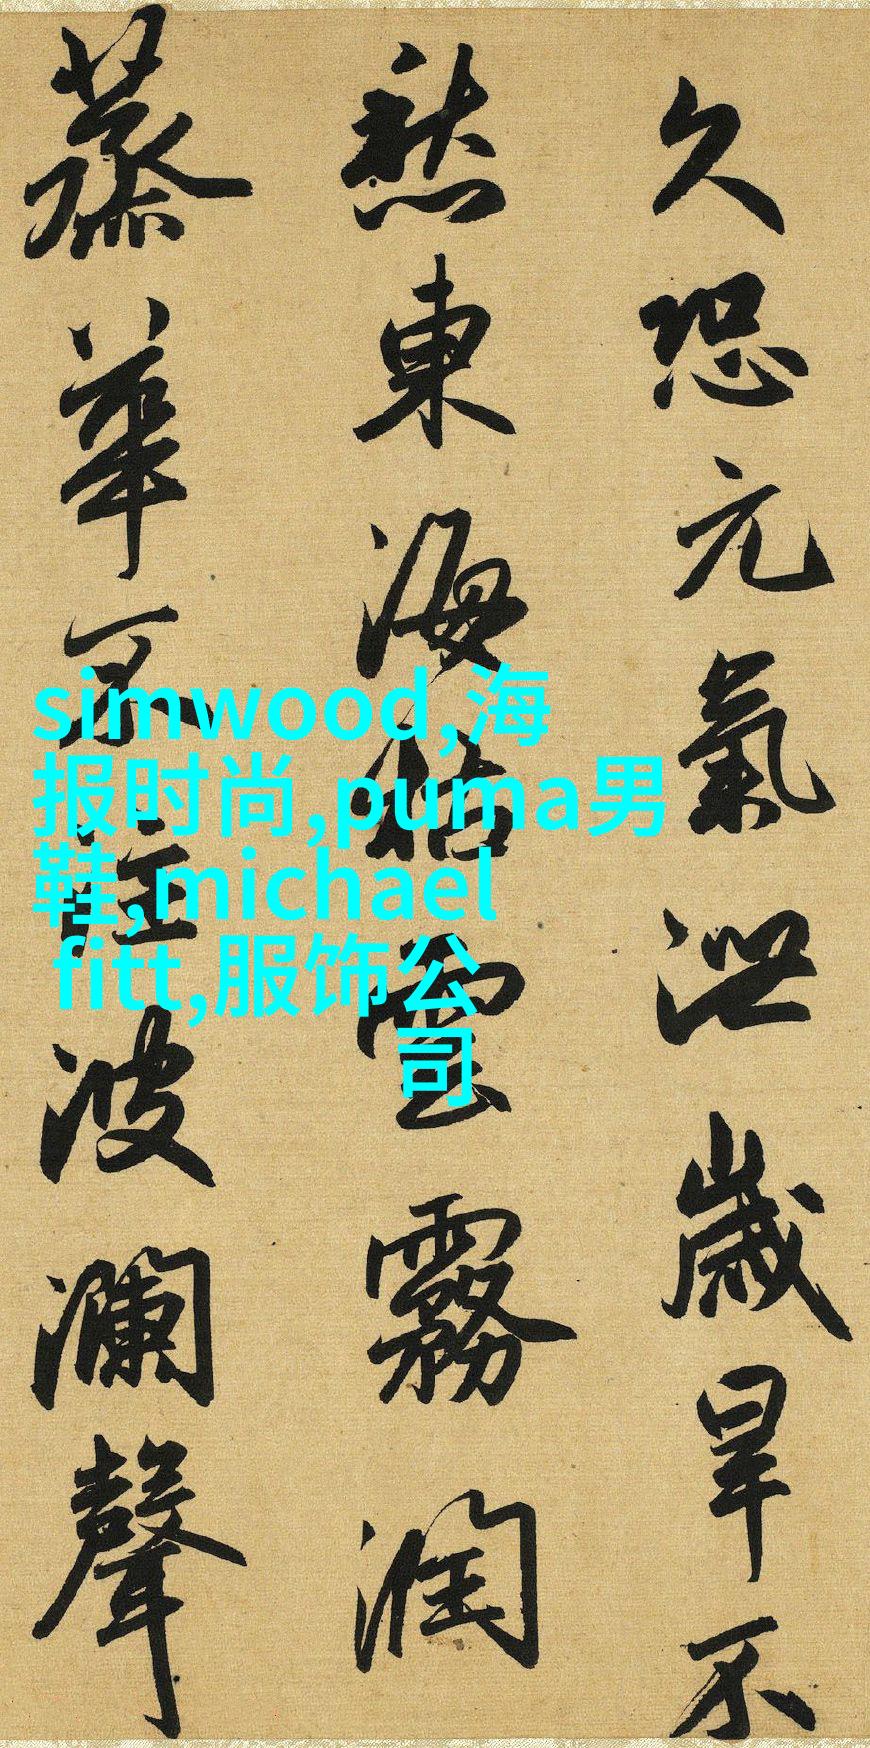 久恐元氣泄歲旱不
愁東海枯雲霧潤
蒸華不注波瀾聲
simwood,海
报时尚,puma男
鞋,michael
fitt,服饰公
司